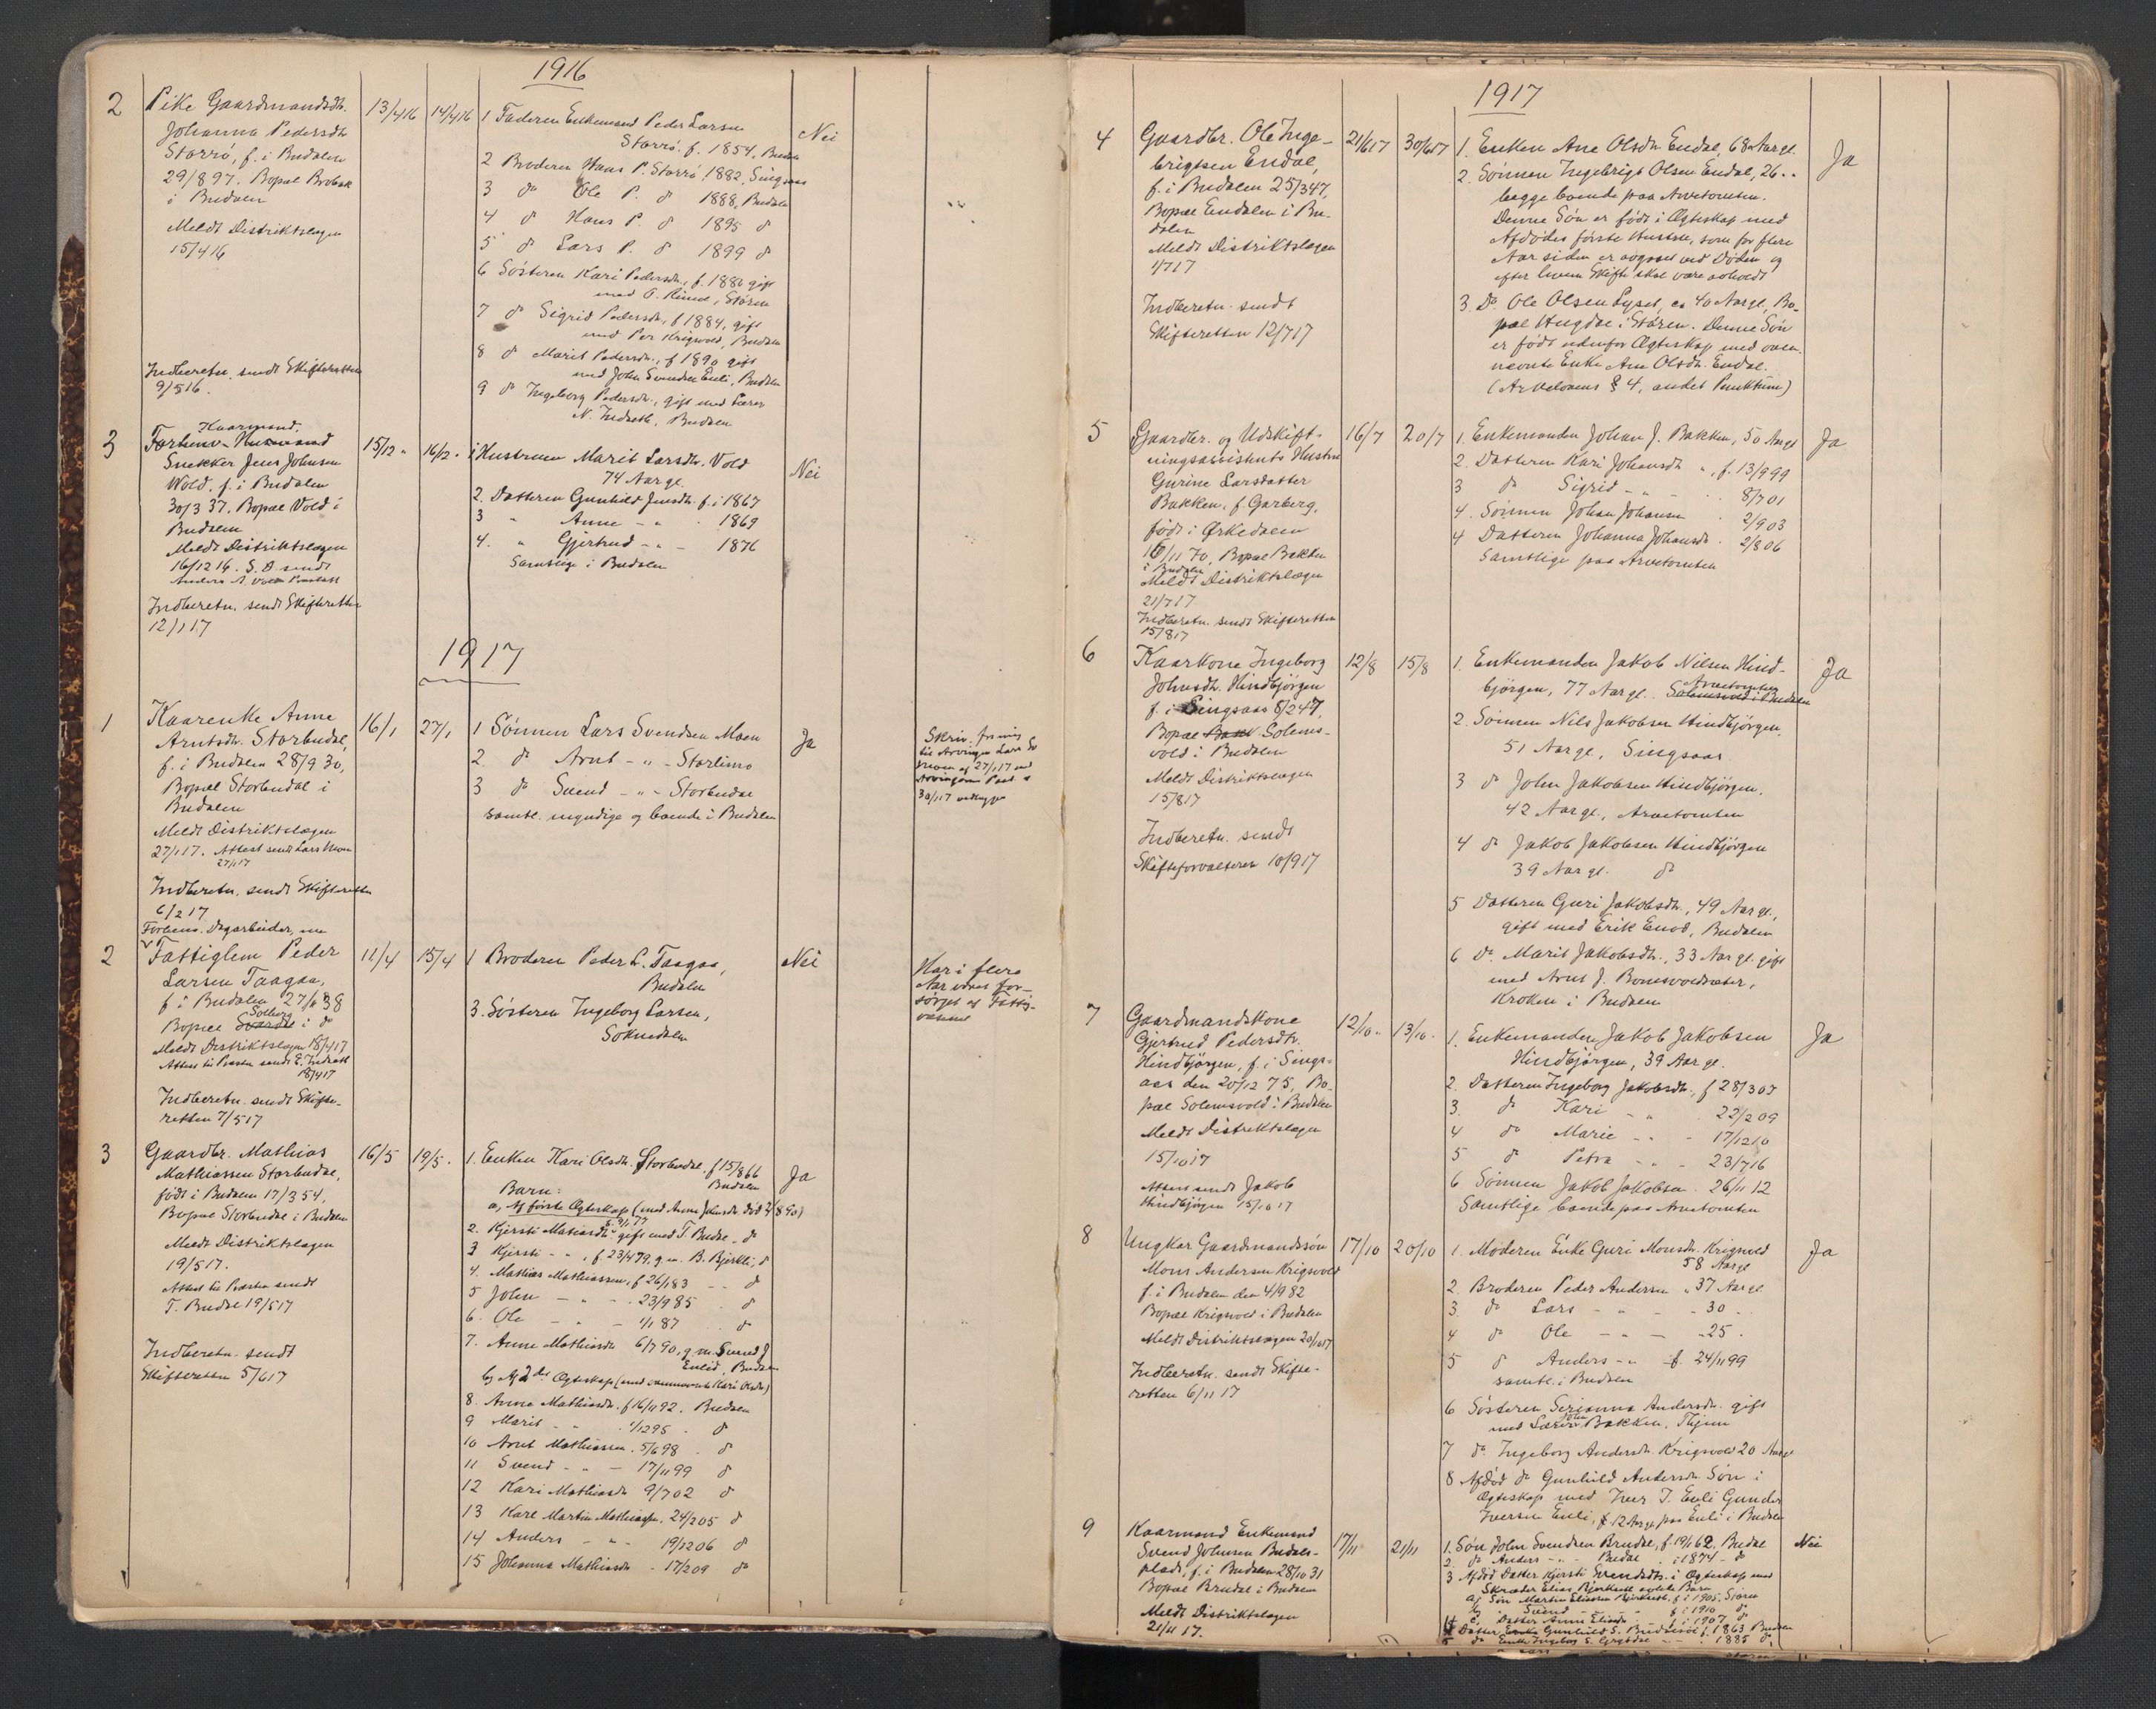 1916
2
Pike Gaardmandsdtr.
Johanna Pedersdtr
Storrö, f. i Budalen
29/8 97. Bopæl Brobak
i Budalen
Meldt Distriktslægen
15/4 16
Indberetn. sendt Skifteretten
9/5 16.
13/4 16
14/4 16
1 Faderen Enkemand Peder Larsen
Storrö. f. 1854, Budalen
2 Broderen Hans P. Storrö, 1882, Singsaas
3 do Ole P. do 1888, Budalen
4 do Hans P. do 1895 do
5 do Lars P. do 1899 do
6 Søsteren Kari Pedersdtr., f. 1880 gift
med O. , Støren
7 do Sigrid Pedersdtr., f 1884, gift
med Per Krigsvold, Budalen
8 do Marit Pedersdtr., f 1890 gift
med John Svendsen Enli, Budalen
9 do Ingeborg Pedersdtr., gift med Lærer
N. Indseth, Budalen
Nei
3
Kaarmand,
Forhenv. Husmand
Snekker Jens Johnsen
Wold, f. i Budalen
30/3 37. Bopæl Vold i
Budalen
Meldt Distriktslægen
16/12 16. S. D sendt
Anders A. Vold
Indberetn. sendt Skifteretten
12/1 17
15/12 "
16/12 "
1 Hustruen Marit Larsdtr. Vold
74 Aar gl.
2. Datteren Gunhild Jensdtr. f. i 1867
3 " Anne - " - 1869
4. " Gjertrud - " - 1876
Samtlige i Budalen
Nei
1917
1
Kaarenke Anne
Arntsdtr. Storbudal,
f. i Budalen 28/9 30,
Bopæl Storbudal i
Budalen
Meldt Distriktslægen
27/1 17. Attest sendt Lars Moen
27/1 17
Indberetn. sendt Skifteretten
6/2 17
16/1
27/1
1 Sønnen Lars Svendsen Moen
2. do Arnt - " - Storlimo
3 do Svend - " - Storbudal
samtl. myndige og boende i Budalen
Ja
Skriv.
til Arvingen Lars Sv
Moen af 27/1 17 med
Arvingernes
30/1 17 vedlagt
2
Forhenv. Dagarbeider, nu
Fattiglem Peder
Larsen Taagaa,
f i Budalen 27/1 38
Solberg
Bopæl i do
Meldt Distriktslægen 18/4 17
Attest til Præsten sendt E. Indseth
18/4 17
Indberetn. sendt Skifte-
retten 7/5 17
11/4
15/4
1 Broderen Peder L. Taagaa,
Budalen
3. Søsteren Ingeborg Larsen,
Soknedalen
Nei
Har i flere
Aar været for-
sørget af Fattig-
væsenet
3
Gaardbr. Mathias
Mathiassen Storbudal,
født i Budalen 17/3 54,
Bopæl Storbudal i Budalen
Meldt Distriktslægen
19/5 17.
Attest til Præsten sendt
T. Budal 19/5 17
Indberetn. sendt
Skifteretten 5/6 17
16/5
19/5.
1. Enken Kari Olsdtr. Storbudal. f 15/8 66
Budalen
Barn:
a, Af første Ægteskap (med Anne Johnsdtr. død 4/8 90)
2. Kjersti Matiasdtr. gift med T. Budal - do
3 Kjersti - " , f 23/4 79, g. m. B. Bjerkli, do
4. Mathias Mathiassen, f 26/1 83 - - do
5 John - " - . 23/9 85 . do
6. Ole - " - 1/1 87 . do
7. Anne Mathiasdtr 6/7 90, g. m. Svend J
Enlid, Budalen
b, Af 2det Ægteskap (med ovennævnte Kari Olsdtr)
8. Anna Mathiasdtr. f 16/11 92. Budalen
9 Marit - 1/12 95 . do
10 Arnt Mathiassen . 5/6 98 . do
11 Svend - " - 17/11 99 do
12 Kari Mathiasdtr 9/7 02 do
13 Karl Martin Mathiassen. 24/2 05 do
14 Anders - " - 19/12 06 do
15 Johanna Mathiasdtr. - 17/2 09 . do
Ja
1917
4
Gaardbr. Ole Inge-
brigtsen Endal,
f. i Budalen 25/3 47,
Bopæl Endalen i Bu-
dalen
Meldt Distriktslægen
1/7 17
Indberetn. sendt
Skifteretten 12/7 17
21/6 17
30/6 17
1. Enken Ane Olsdtr. Endal, 68 Aar gl.
2. Sønnen Ingebrigt Olsen Endal, 26 "
begge boende paa Arvetomten.
Denne Søn er født i Ægteskap med
Afdødes første Hustru, som for flere
Aar siden er avgaaet ved Døden og
efter hvem Skifte skal være avholdt
3 Do Ole Olsen Lyset, ca 40 Aar gl., Bo-
pæl Hugdal i Støren. Denne Søn
er født udenfor Ægteskap med oven-
nævnte Enke Ane Olsdtr. Endal.
(Arvelovens § 4, andet Punktum)
Ja
5
Gaardbr. og Udskift-
ningsassistents Hustru
Gurine Larsdatter
Bakken, f. Garberg,
født i Ørkedalen
16/11 70, Bopæl Bakken
i Budalen
Meldt Distriktslægen
21/7 17
Indberetn. sendt Skifteretten
15/8 17
16/7
20/7
1. Enkemanden Johan J. Bakken, 50 Aar gl
2. Datteren Kari Johansdtr ", f. 13/9 99
3 do Sigrid - " - . . 8/7 01
4. Sønnen Johan Johansen . 2/9 03
4 Datteren Johanna Johansdtr. . 2/8 06
Samtlige paa Arvetomten
Ja
6
Kaarkone Ingeborg
Johnsdtr. Hindbjørgen
f. i Singsaas 8/2 47,
Bopæl Solems-
vold i Budalen
Meldt Distriktslægen
15/8 17
Indberetn. sendt
Skifteforvalteren 10/9 17
12/8
15/8
1. Enkemanden Jakob Nilsen Hind-
bjørgen, 77 Aar gl. Arvetomten
Solemsvold i Budalen
2. Sønnen Nils Jakobsen Hindbjørgen,
51 Aar gl., Singsaas
3 do John Jakobsen Hindbjørgen,
42 Aar gl., Arvetomten
4 do Jakob Jakobsen Hindbjørgen
39 Aar gl. do
5 Datteren Guri Jakobsdtr., 49 Aar gl.,
gift med Erik Enod, Budalen
6 Do Marit Jakobsdtr., 33 Aar gl. gift
med Arnt J. Bonesvoldsæter,
Kroken i Budalen
Ja
7
Gaardmandskone
Gjertrud Pedersdtr.
Hindbjørgen, f. i Sings-
aas den 20/12 75, Bo-
pæl Solemsvold i Budalen
Meldt Distriktslægen
15/10 17
Attest sendt Jakob
Hindbjørgen 15/10 17
12/10.
13/10.
1. Enkemanden Jakob Jakobsen
Hindbjørgen, 39 Aar gl.
2. Datteren Ingeborg Jakobsdtr., f 28/3 07
3. do Kari - " . 22/2 09
4 do Marie - " - 17/12 10
5 do Petra - " - 23/7 16
6 Sønnen Jakob Jakobsen . 26/11 12
Samtlige boende paa Arvetomten
Ja
8
Ungkar Gaardmandssøn
Mons Andersen Krigsvold
f. i Budalen den 4/9 82
Bopæl Krigsvold i Budalen
Meldt Distriktslægen 20/10 17
Indberetn. sendt Skifte-
retten 6/11 17
17/10
20/10
1. Moderen Enke Guri Monsdtr. Krigsvold
58 Aar gl
2. Broderen Peder Andersen " 37 Aar gl
3. do Lars - " - - 30 -
4 do Ole - " - - 25 .
5 do Anders - " f. 24/11 99
samtl. i Budalen
6 Søsteren Serianna Andersdtr. gift
med Lærer John Bakken, Thjem
7 do Ingeborg Andersdtr. Krigsvold 20 Aar gl
8 Afdød do Gunhild Andersdtr Søn i
Ægteskap med Iver J. Enli Gunder
Iversen Enli, f. 12 Aar gl. paa Enli i Budalen
Ja
9
Kaarmand Enkemand
Svend Johnsen Budals-
plads, f. i Budalen 28/10 31
Bopæl Brudal i Budalen
Meldt Distriktslægen
21/11 17.
17/11
21/11
1. Søn John Svendsen Brudal, f. 19/1 62. Budal
2. do Anders - " - Budal . i 1874 - do
3 Afdød Datter Kjersti Svendsdtr. i Ægteskap med
Skræder Elias Bjerkeset avlede Barn
a, Søn Martin Eliassen Bjerkeset, f. i 1905. Støren
b, Svend - f. i 1910 do
c, Datter Anne Eliasdtr - f. i 1907 do
4 Datter Gunhild S. f. 1863 Budalen
5 do Enke Ingeborg S. - 1885 do
Nei